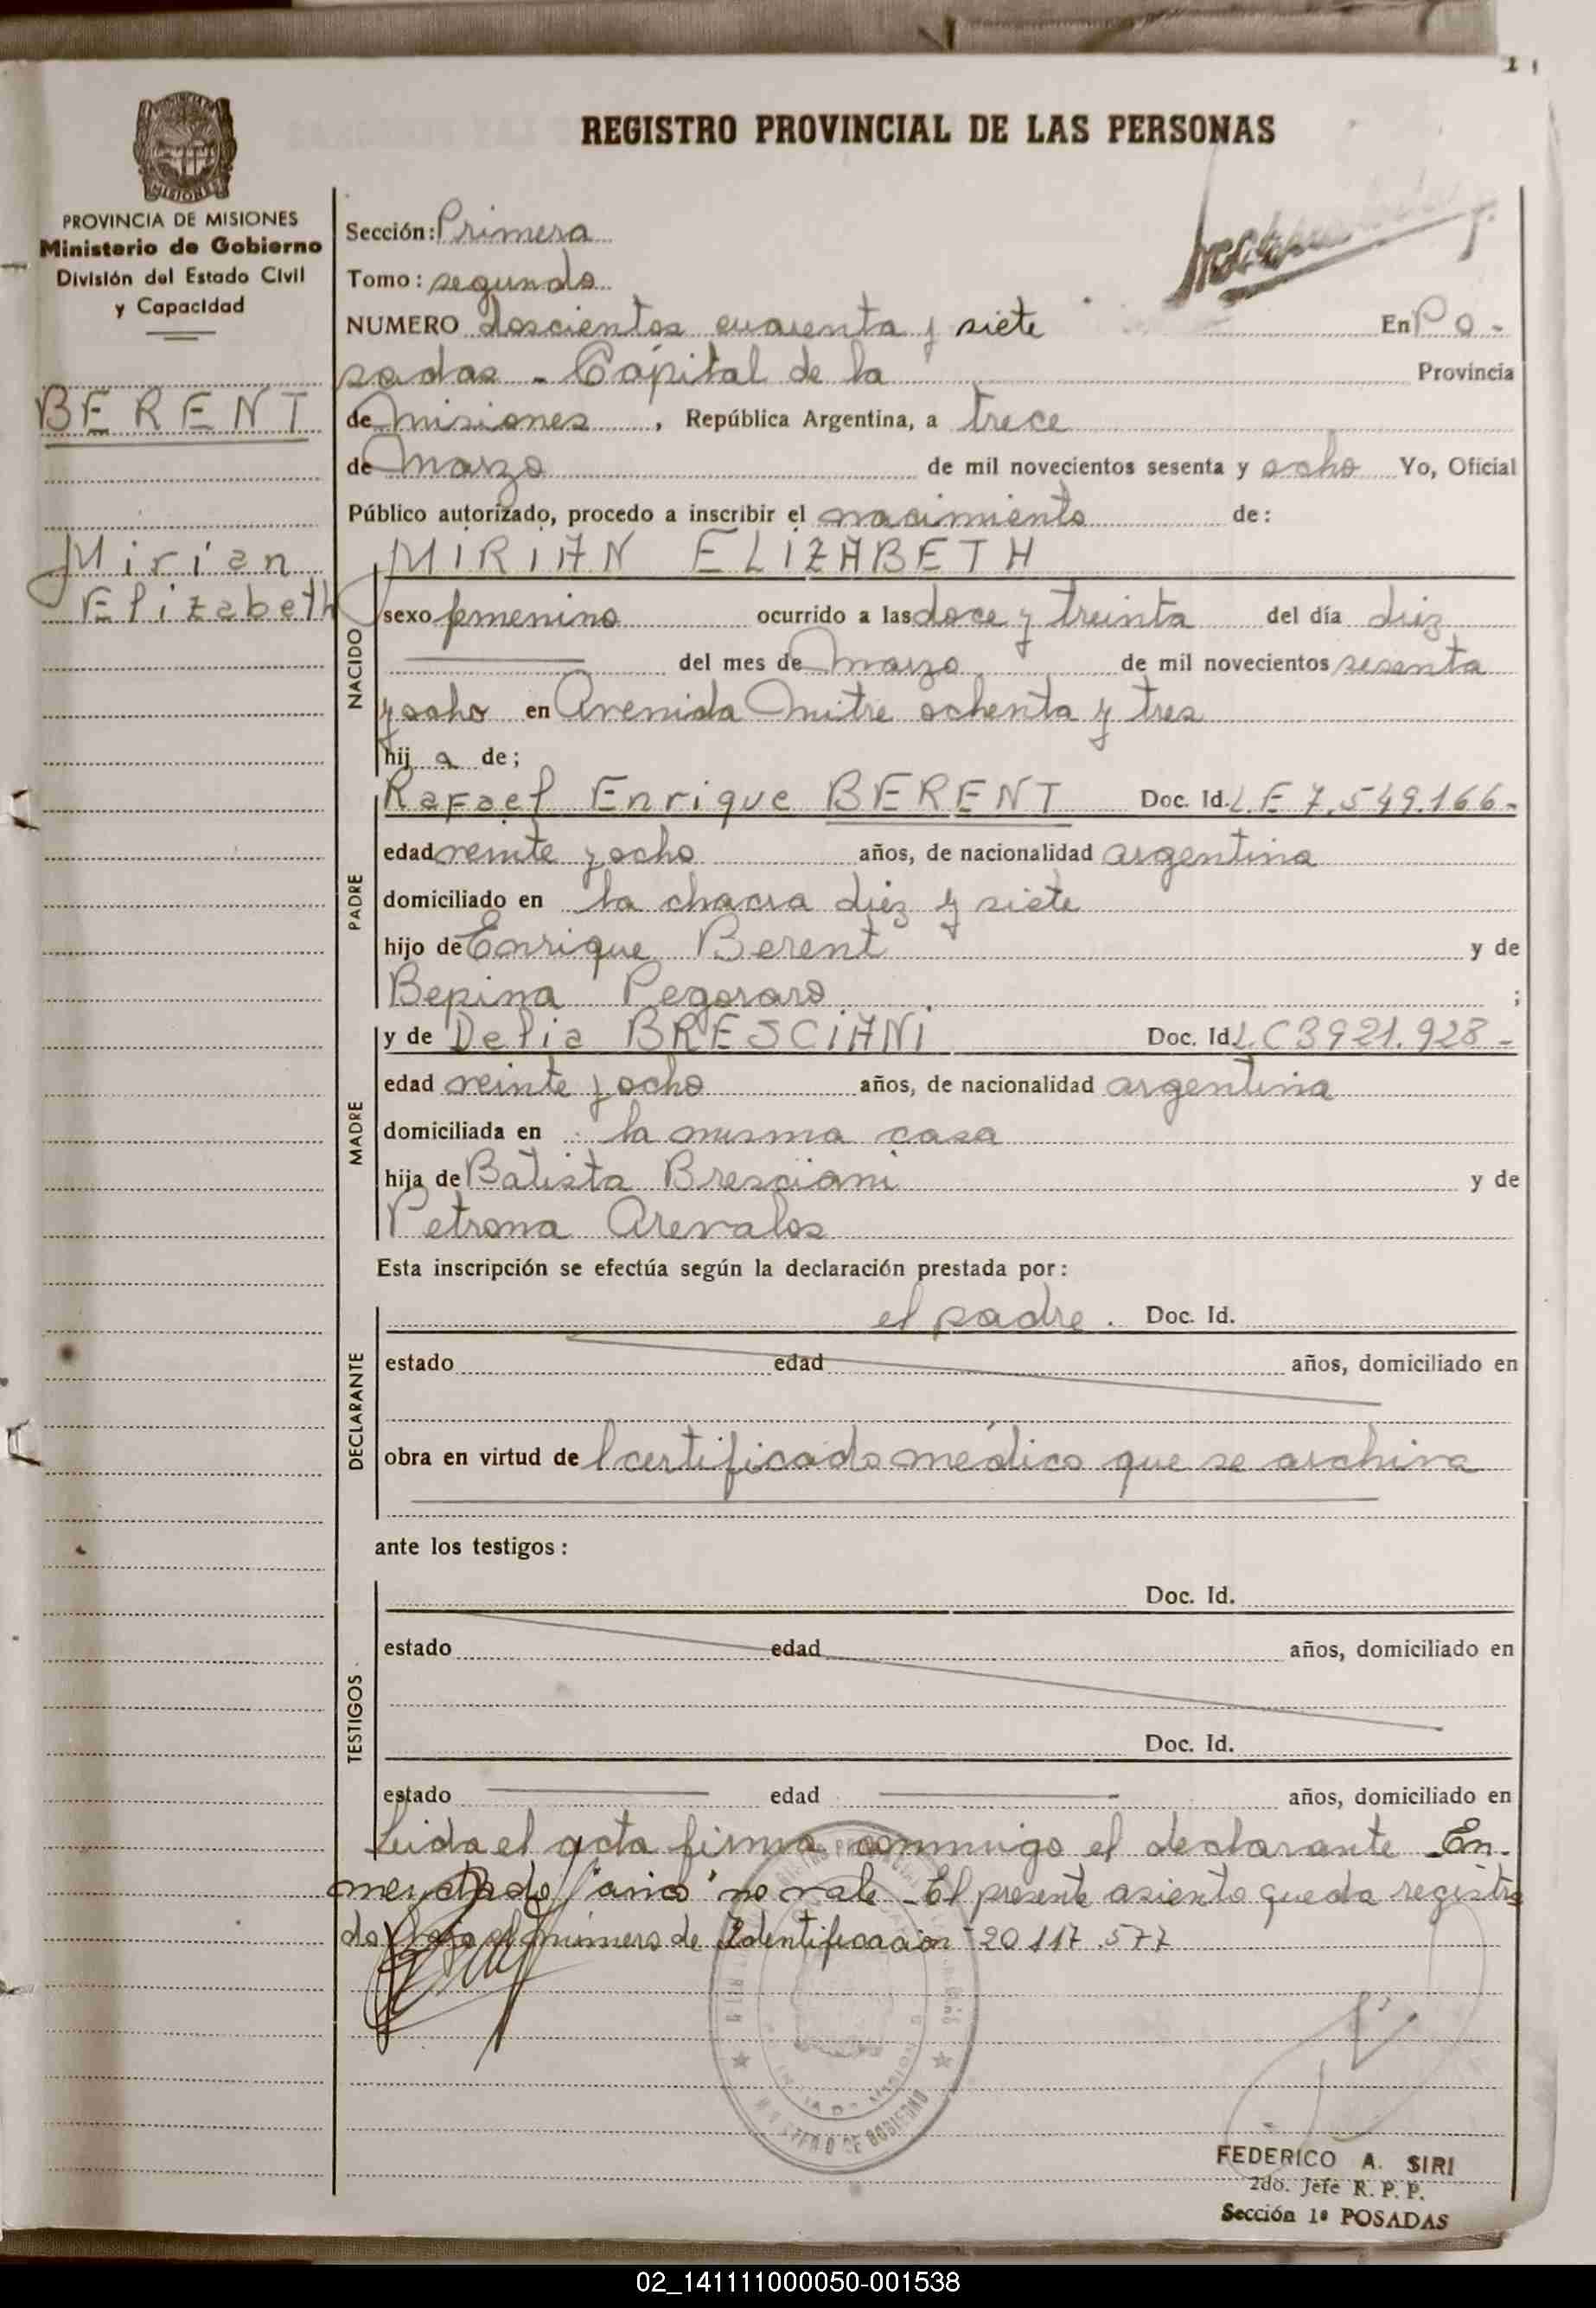 REGISTRO PROVINCIAL DE LAS PERSONAS
PROVINCIA DE MISIONES
Ministerio de Gobierno
División del Estado Civil
y Capacidad
BERENT
Mirian
Elizabeth
Sección: Primera
Tomo: segundo
NUMERO doscientos cuarenta y siete En Po-
sadas - Capital de la Provincia
de Misiones, República Argentina, a trece
de Marzo de mil novecientos sesenta y ocho Yo, Oficial
Público autorizado, procedo a inscribir el nacimiento de:
MIRIAN ELIZABETH
NACIDO
sexo femenino ocurrido a las doce y treinta del día diez
del mes de Marzo de mil novecientos sesenta
y ocho en Avenida Mitre ochenta y tres
hij a de;
PADRE
Rafael Enrique BERENT Doc. Id. L E 7.549.166-
edad veinte y ocho años, de nacionalidad argentina
domiciliado en la chacra diez y siete
hijo de Enrique Berent y de
Bepina Pegoraro ;
MADRE
y de Delia BRESCIANI Doc. Id. L.C 3921.928-
edad veinte y ocho años, de nacionalidad argentina
domiciliada en la misma casa
hija de Batista Bresciani y de
Petrona Arevalos
Esta inscripción se efectúa según la declaración prestada por:
DECLARANTE
el padre. Doc. Id.
estado edad años, domiciliado en
obra en virtud de l certificado médico que se archiva
ante los testigos:
TESTIGOS
Doc. Id.
estado edad años, domiciliado en
Doc. Id.
estado edad años, domiciliado en
Leida el acta firma conmigo el declarante - En-
mendado no vale - El presente asiento queda registra
do bajo el número de Identificación 20.117.577
MINISTERIO DE GOBIERNO
FEDERICO A. SIRI
2do. Jefe R. P. P.
Sección 1ª POSADAS
02_141111000050-001538